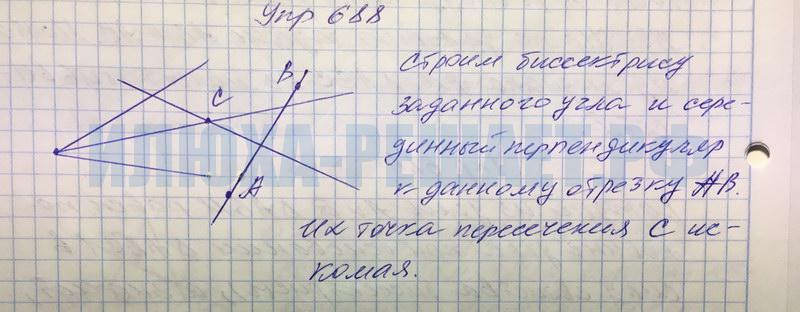 Упр 688
Строим биссектрису
заданного угла и сере-
динный перпендикуляр
к данному отрезку AB.
Их точка пересечения C ис-
комая.
B
C
A
ИЛЮХА-РЕШАЕТ.РФ